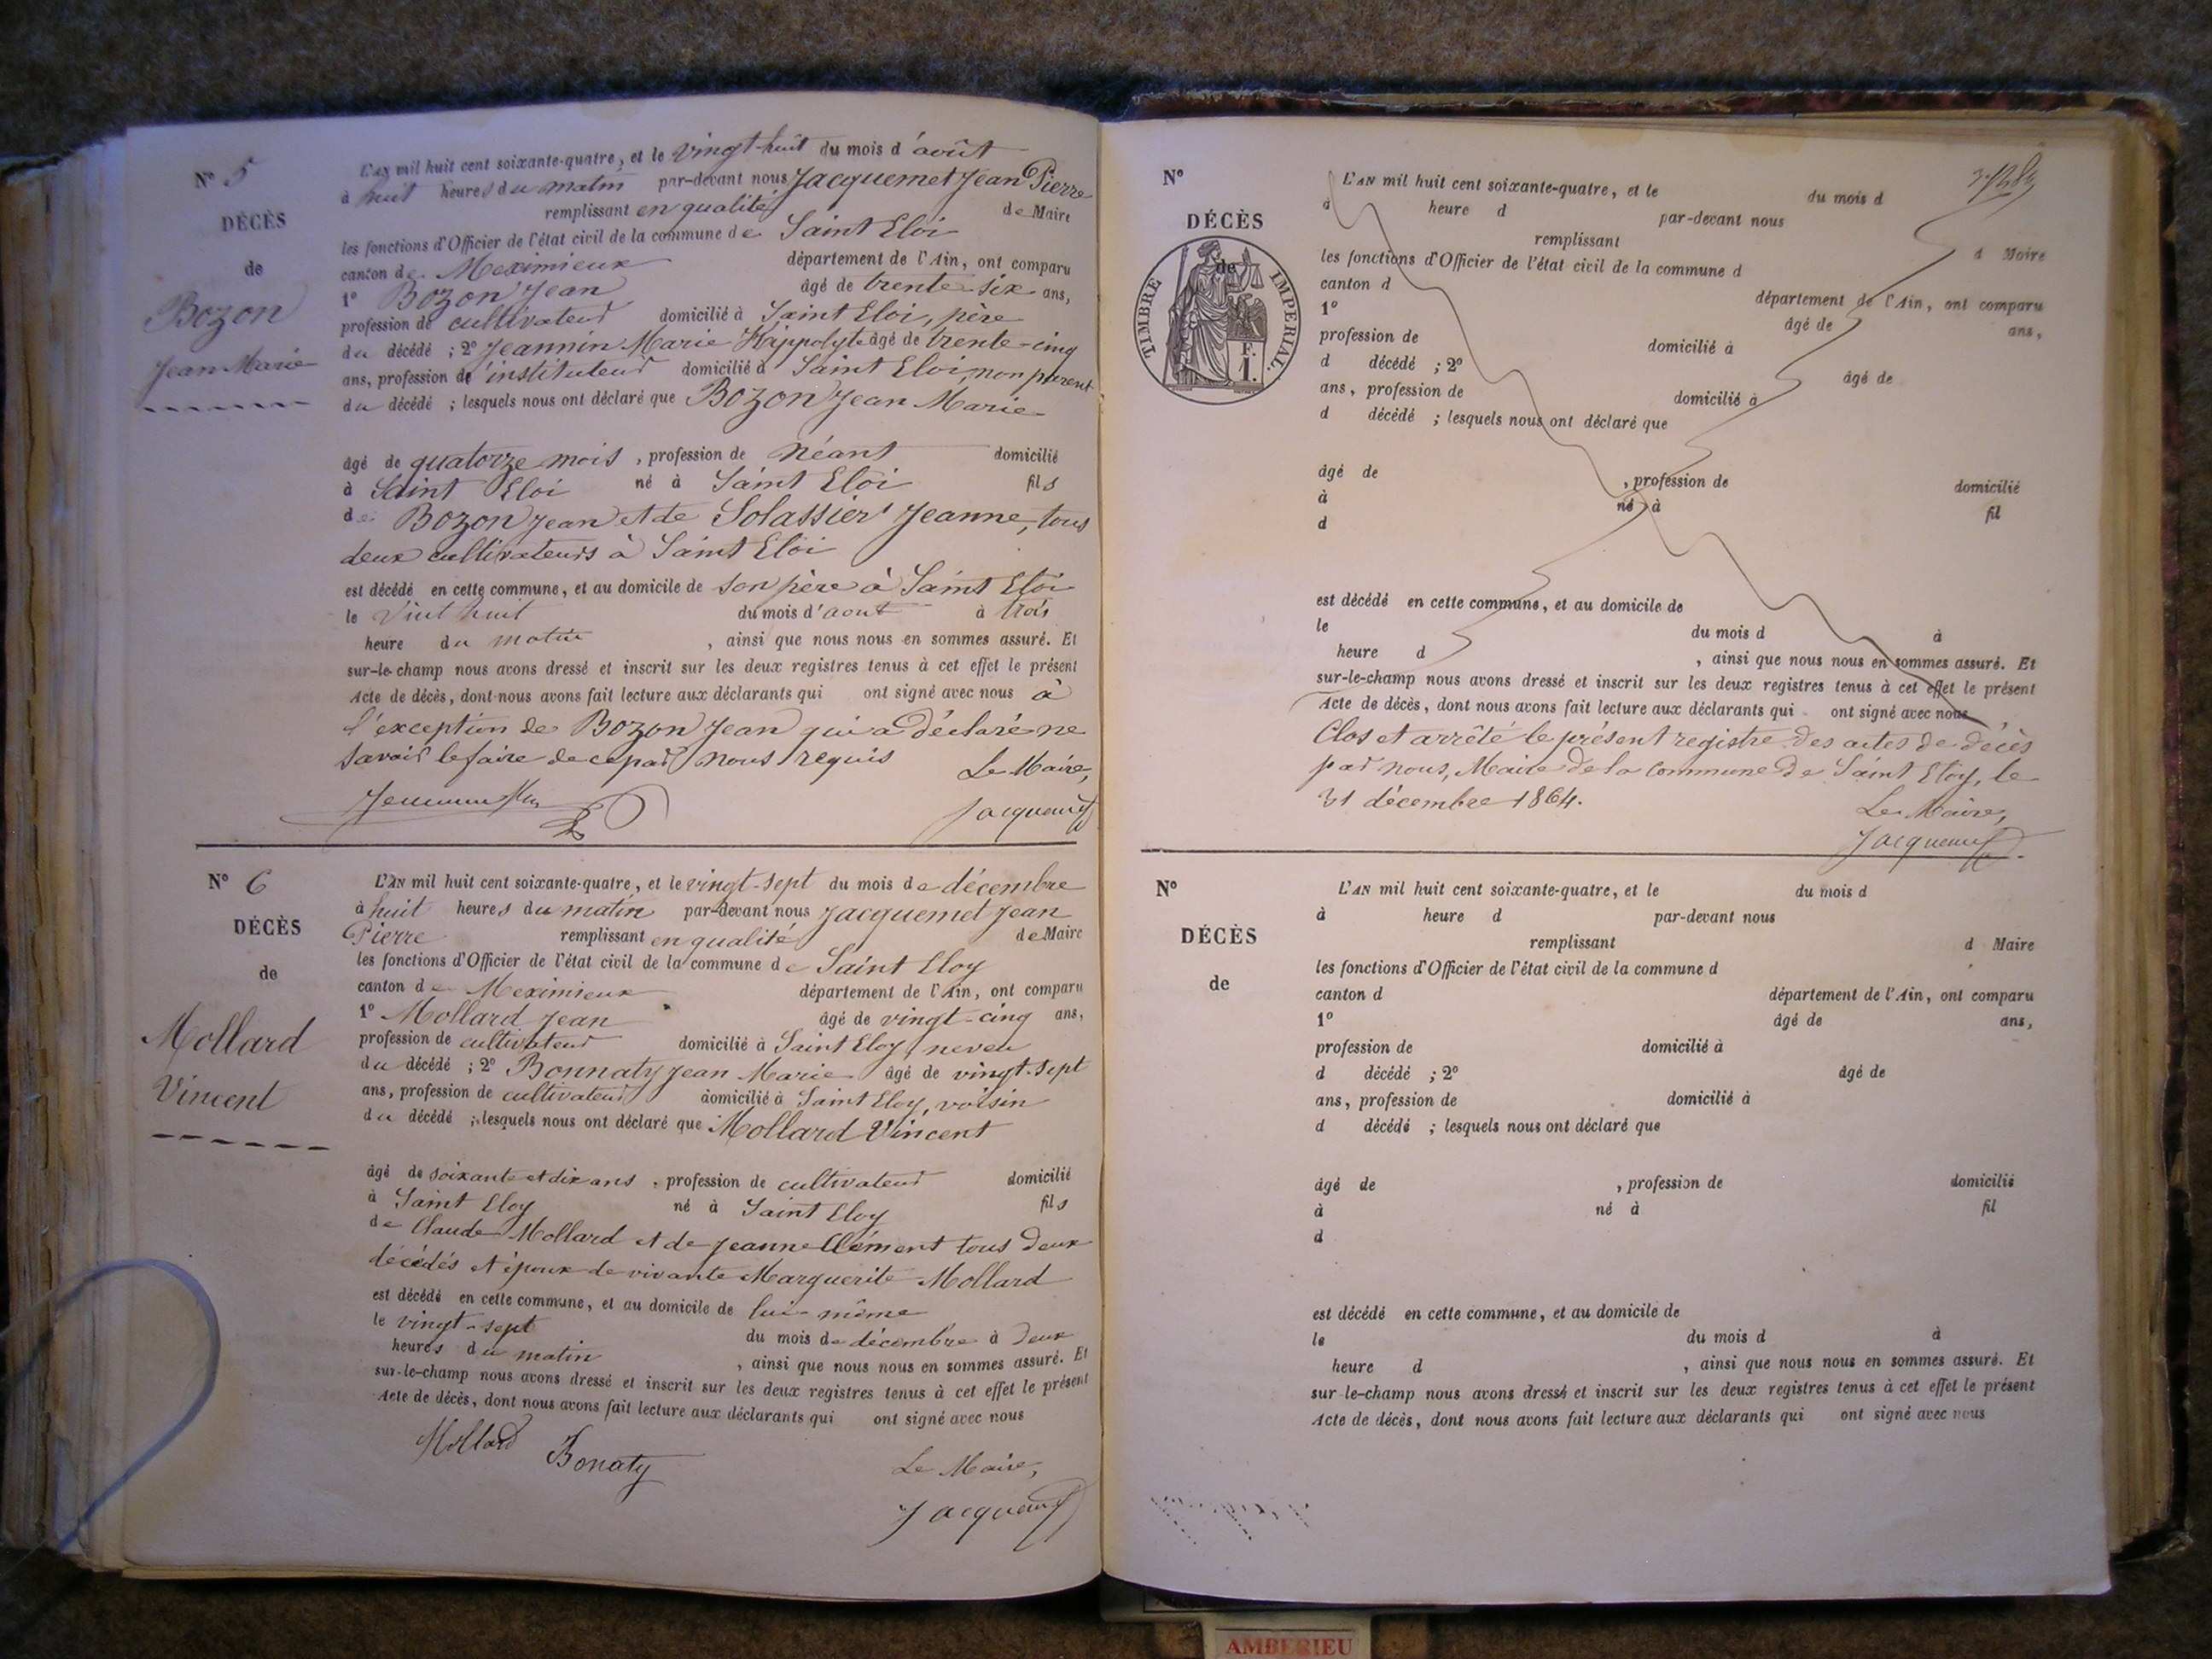 N° 5
DÉCÈS
de
Bozon
Jean Marie
L'AN mil huit cent soixante-quatre, et le vingt-huit du mois d'août
à huit heures du matin par-devant nous Jacquemet Jean Pierre
remplissant en qualité de Maire
les fonctions d'Officier de l'état civil de la commune de Saint Eloi
canton de Meximieux département de l'Ain, ont comparu
1° Bozon Jean âgé de trente-six ans,
profession de cultivateur domicilié à Saint Eloi, père
du décédé ; 2° Jeannin Marie Hippolyte âgé de trente-cinq
ans, profession de instituteur domicilié à Saint Eloi, non parent
du décédé ; lesquels nous ont déclaré que Bozon Jean Marie
âgé de quatorze mois, profession de Néant domicilié
à Saint Eloi né à Saint Eloi fils
de Bozon Jean et de Solassier Jeanne, tous
deux cultivateurs à Saint Eloi
est décédé en cette commune, et au domicile de son père à Saint Eloi
le Vint huit du mois d'aout à trois
heure du matin, ainsi que nous nous en sommes assuré. Et
sur-le-champ nous avons dressé et inscrit sur les deux registres tenus à cet effet le présent
Acte de décès, dont nous avons fait lecture aux déclarants qui ont signé avec nous à
l'exception de Bozon Jean qui a déclaré ne
savoir le faire de ce par nous requis Le Maire,
Jacquemet
N° 6
DÉCÈS
de
Mollard
Vincent
L'AN mil huit cent soixante-quatre, et le vingt-sept du mois de décembre
à huit heures du matin par-devant nous Jacquemet Jean
Pierre remplissant en qualité de Maire
les fonctions d'Officier de l'état civil de la commune de Saint Eloy
canton de Meximieux département de l'Ain, ont comparu
1° Mollard Jean âgé de vingt-cinq ans,
profession de cultivateur domicilié à Saint Eloy, neveu
du décédé ; 2° Bonnaty Jean Marie âgé de vingt-sept
ans, profession de cultivateur domicilié à Saint Eloy, voisin
du décédé ; lesquels nous ont déclaré que Mollard Vincent
âgé de soixante et dix ans, profession de cultivateur domicilié
à Saint Eloy né à Saint Eloy fils
de Claude Mollard et de Jeanne Clément tous deux
décédés et époux de vivante Marguerite Mollard
est décédé en cette commune, et au domicile de lui-même
le vingt-sept du mois de décembre à deux
heures du matin, ainsi que nous nous en sommes assuré. Et
sur-le-champ nous avons dressé et inscrit sur les deux registres tenus à cet effet le présent
Acte de décès, dont nous avons fait lecture aux déclarants qui ont signé avec nous
Mollard Bonaty Le Maire,
Jacquemet
N°
DÉCÈS
de
TIMBRE IMPÉRIAL.
F.
1.
L'AN mil huit cent soixante-quatre, et le du mois d
à heure d par-devant nous
remplissant d Maire
les fonctions d'Officier de l'état civil de la commune d
canton d département de l'Ain, ont comparu
1° âgé de ans,
profession de domicilié à
d décédé ; 2° âgé de
ans, profession de domicilié à
d décédé ; lesquels nous ont déclaré que
âgé de , profession de domicilié
à né à fil
d
est décédé en cette commune, et au domicile de
le du mois d à
heure d , ainsi que nous nous en sommes assuré. Et
sur-le-champ nous avons dressé et inscrit sur les deux registres tenus à cet effet le présent
Acte de décès, dont nous avons fait lecture aux déclarants qui ont signé avec nous
Clos et arrêté le présent registre des actes de décès
par nous, Maire de la commune de Saint Eloy, le
31 décembre 1864.
Le Maire,
Jacquemet
N°
DÉCÈS
de
L'AN mil huit cent soixante-quatre, et le du mois d
à heure d par-devant nous
remplissant d Maire
les fonctions d'Officier de l'état civil de la commune d
canton d département de l'Ain, ont comparu
1° âgé de ans,
profession de domicilié à
d décédé ; 2° âgé de
ans, profession de domicilié à
d décédé ; lesquels nous ont déclaré que
âgé de , profession de domicilié
à né à fil
d
est décédé en cette commune, et au domicile de
le du mois d à
heure d , ainsi que nous nous en sommes assuré. Et
sur-le-champ nous avons dressé et inscrit sur les deux registres tenus à cet effet le présent
Acte de décès, dont nous avons fait lecture aux déclarants qui ont signé avec nous
AMBERIEU